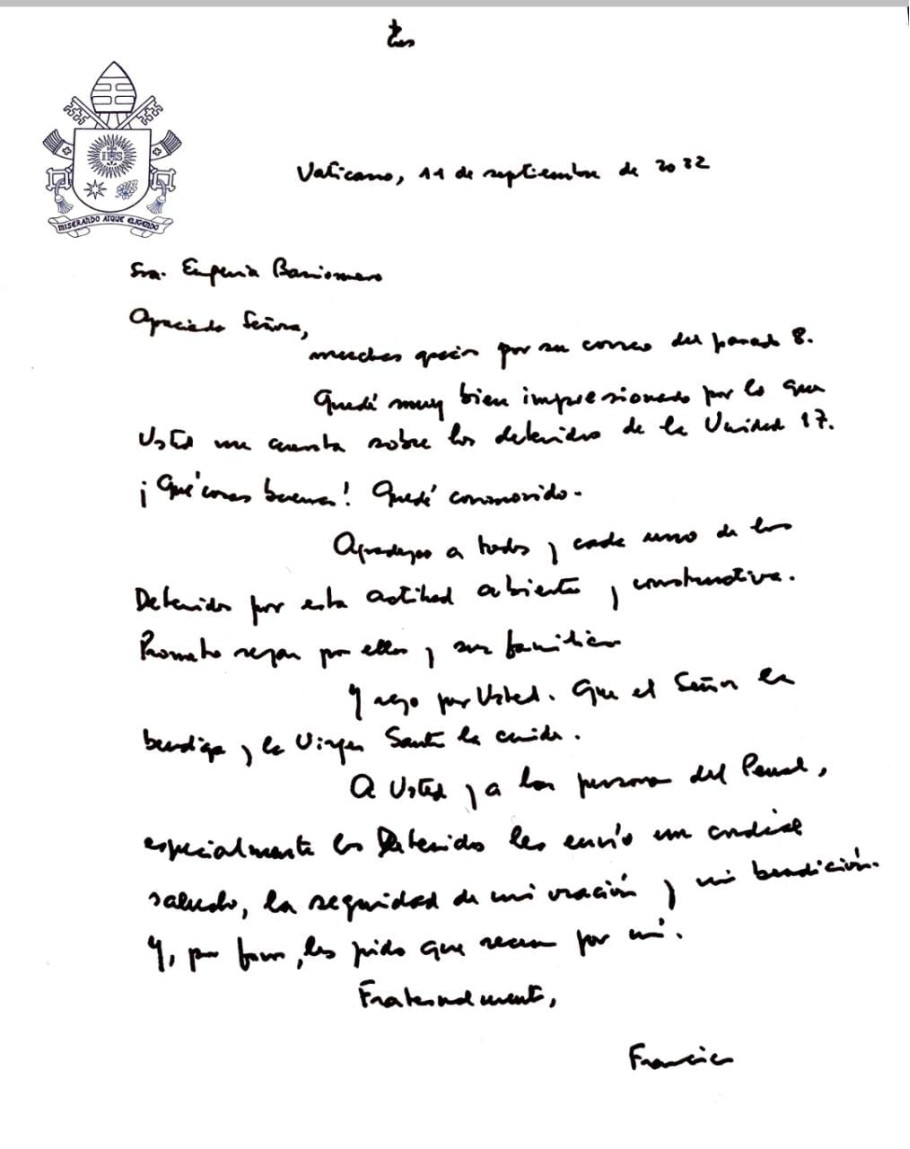 MISERANDO ATQUE ELIGENDO
IHS
Vaticano, 11 de septiembre de 2022
Sra. Eugenia
Apreciada Señora,
muchas gracias por su correo del pasado 8.
Quedé muy bien impresionado por lo que
Usted me cuenta sobre los detenidos de la Unidad 17.
¡Qué cosas buenas! Quedé conmovido.
Agradezco a todos y cada uno de los
Detenidos por esta actitud abierta y constructiva.
Prometo rezar por ellos y sus familias
Y rezo por Usted. Que el Señor la
bendiga y la Virgen Santa la cuide.
A Usted y a las personas del Penal,
especialmente los Detenidos les envío un cordial
saludo, la seguridad de mi oración y mi bendición.
Y, por favor, les pido que recen por mí.
Fraternalmente,
Francisco